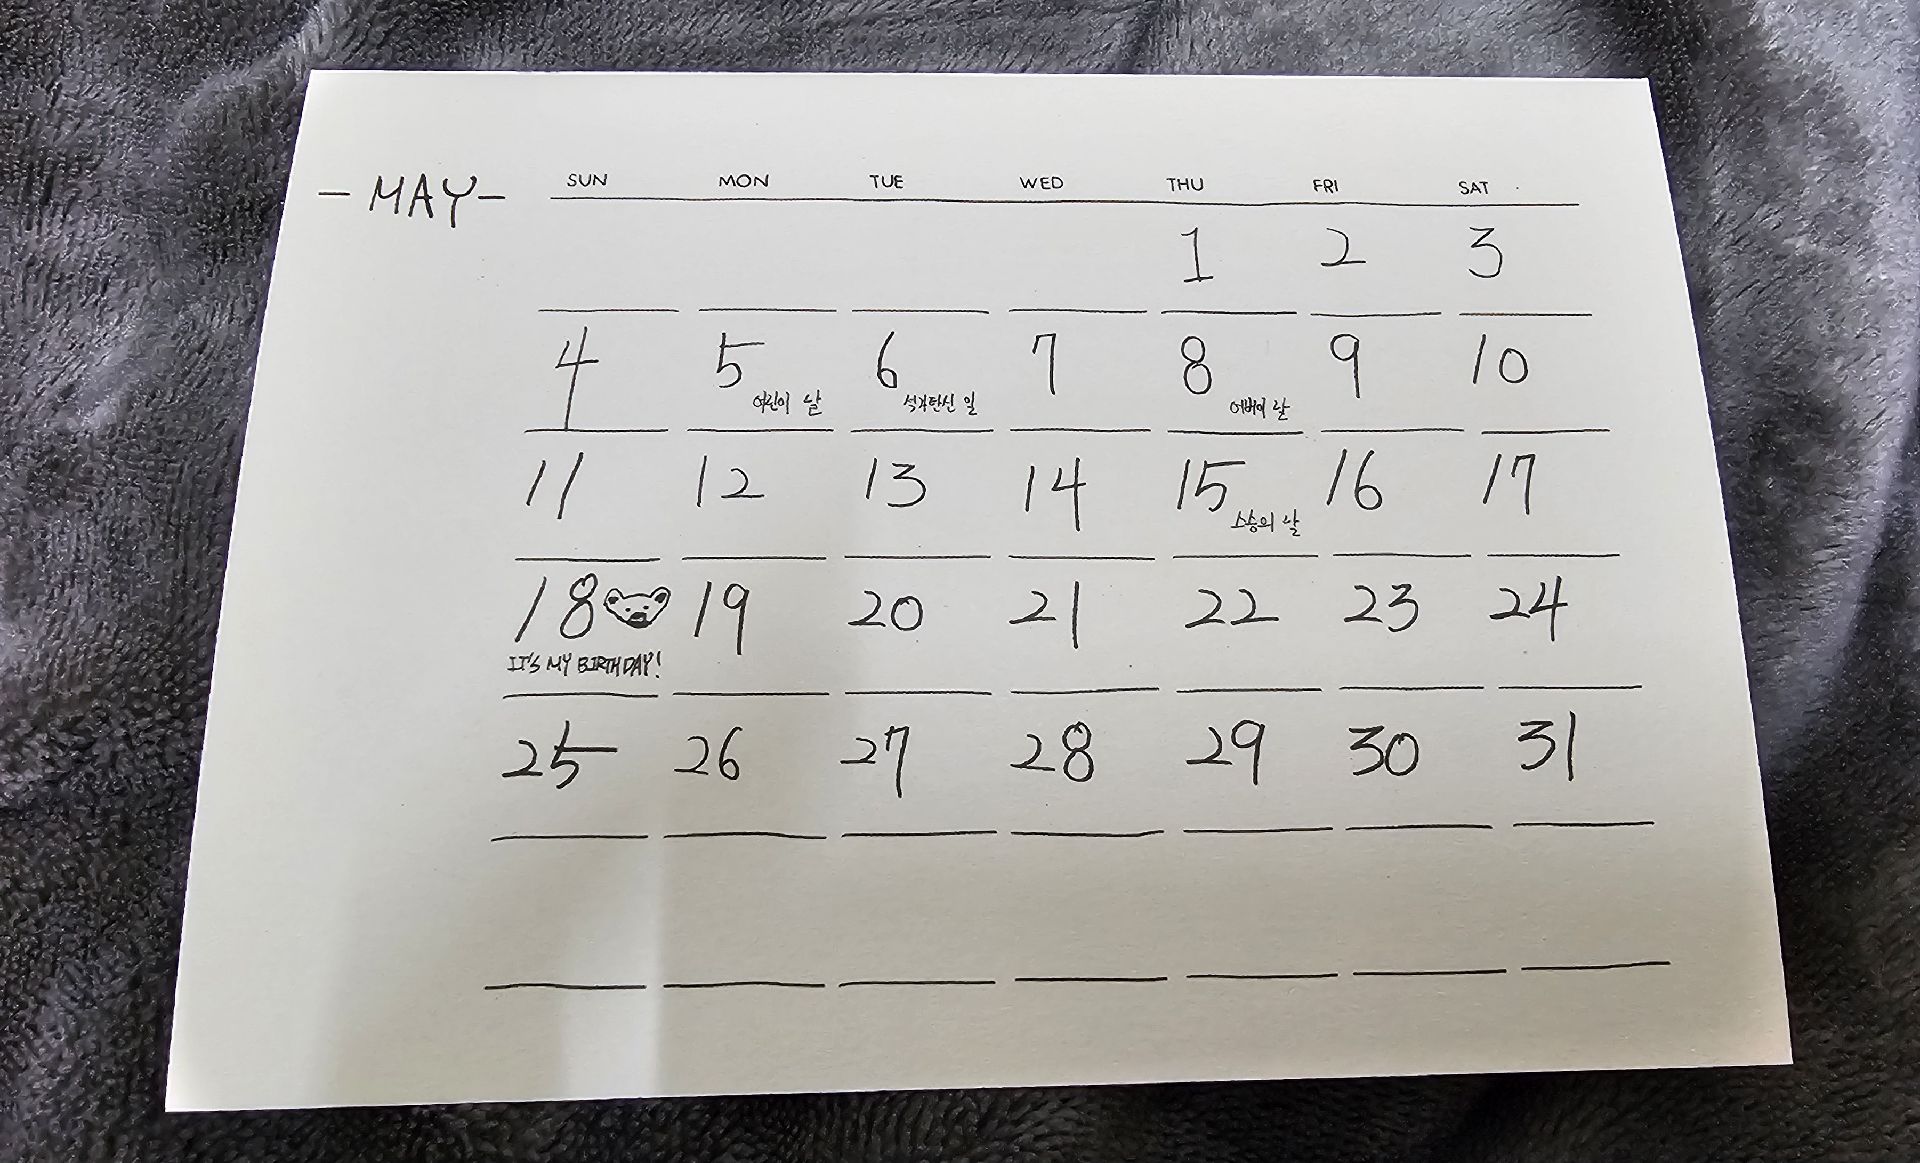 - MAY -
SUN MON TUE WED THU FRI SAT
1 2 3
4 5 6 7 8 9 10
어린이 날 석가탄신 일 어버이 날
11 12 13 14 15 16 17
스승의 날
18 19 20 21 22 23 24
IT'S MY BIRTHDAY!
25 26 27 28 29 30 31